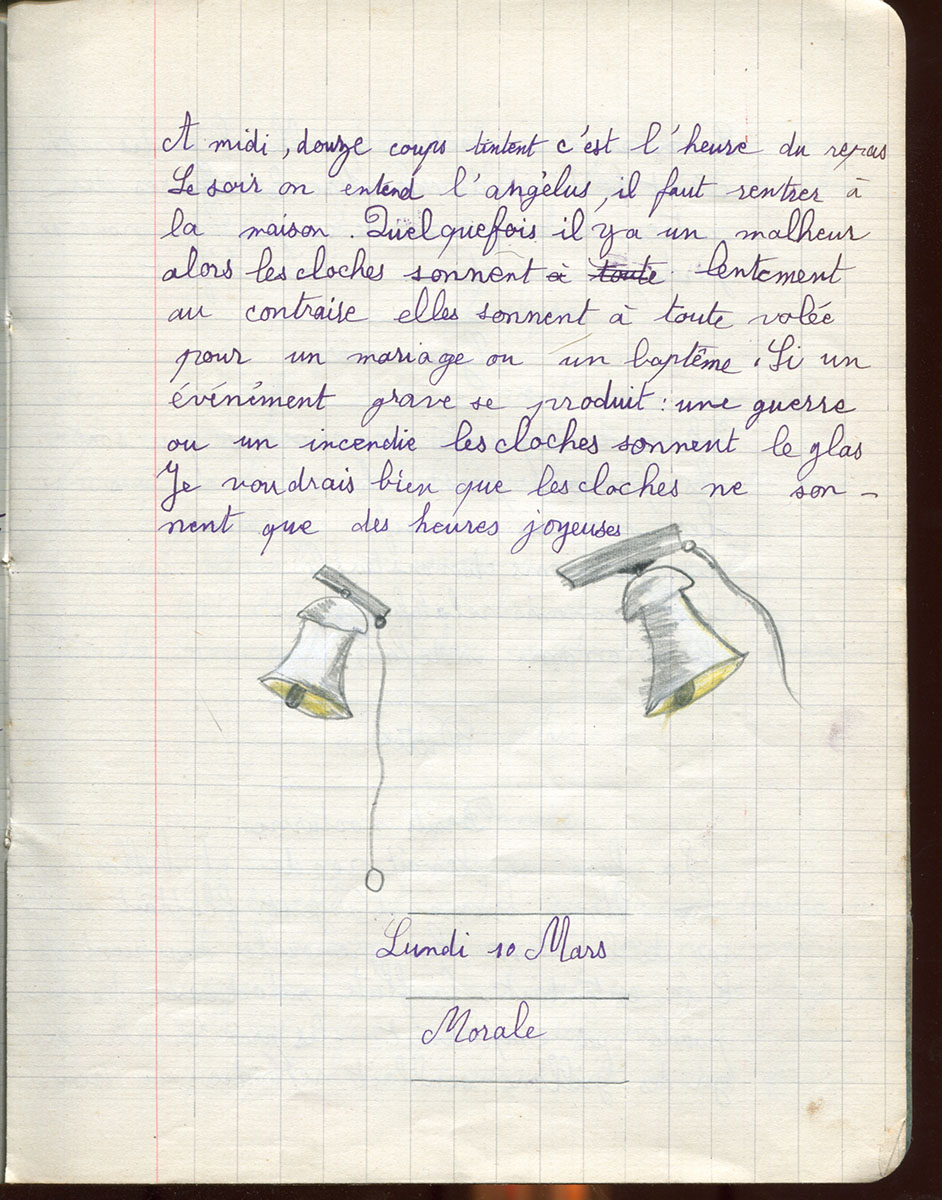 A midi, douze coups tintent c'est l'heure du repas
Le soir on entend l'angélus, il faut rentrer à
la maison. Quelquefois il y a un malheur
alors les cloches sonnent à toute lentement
au contraise elles sonnent à toute volée
pour un mariage ou un baptême. Si un
événément grave se produit : une guerre
ou un incendie les cloches sonnent le glas
Je voudrais bien que les cloches ne son-
nent que des heures joyeuses
Lundi 10 Mars
Morale